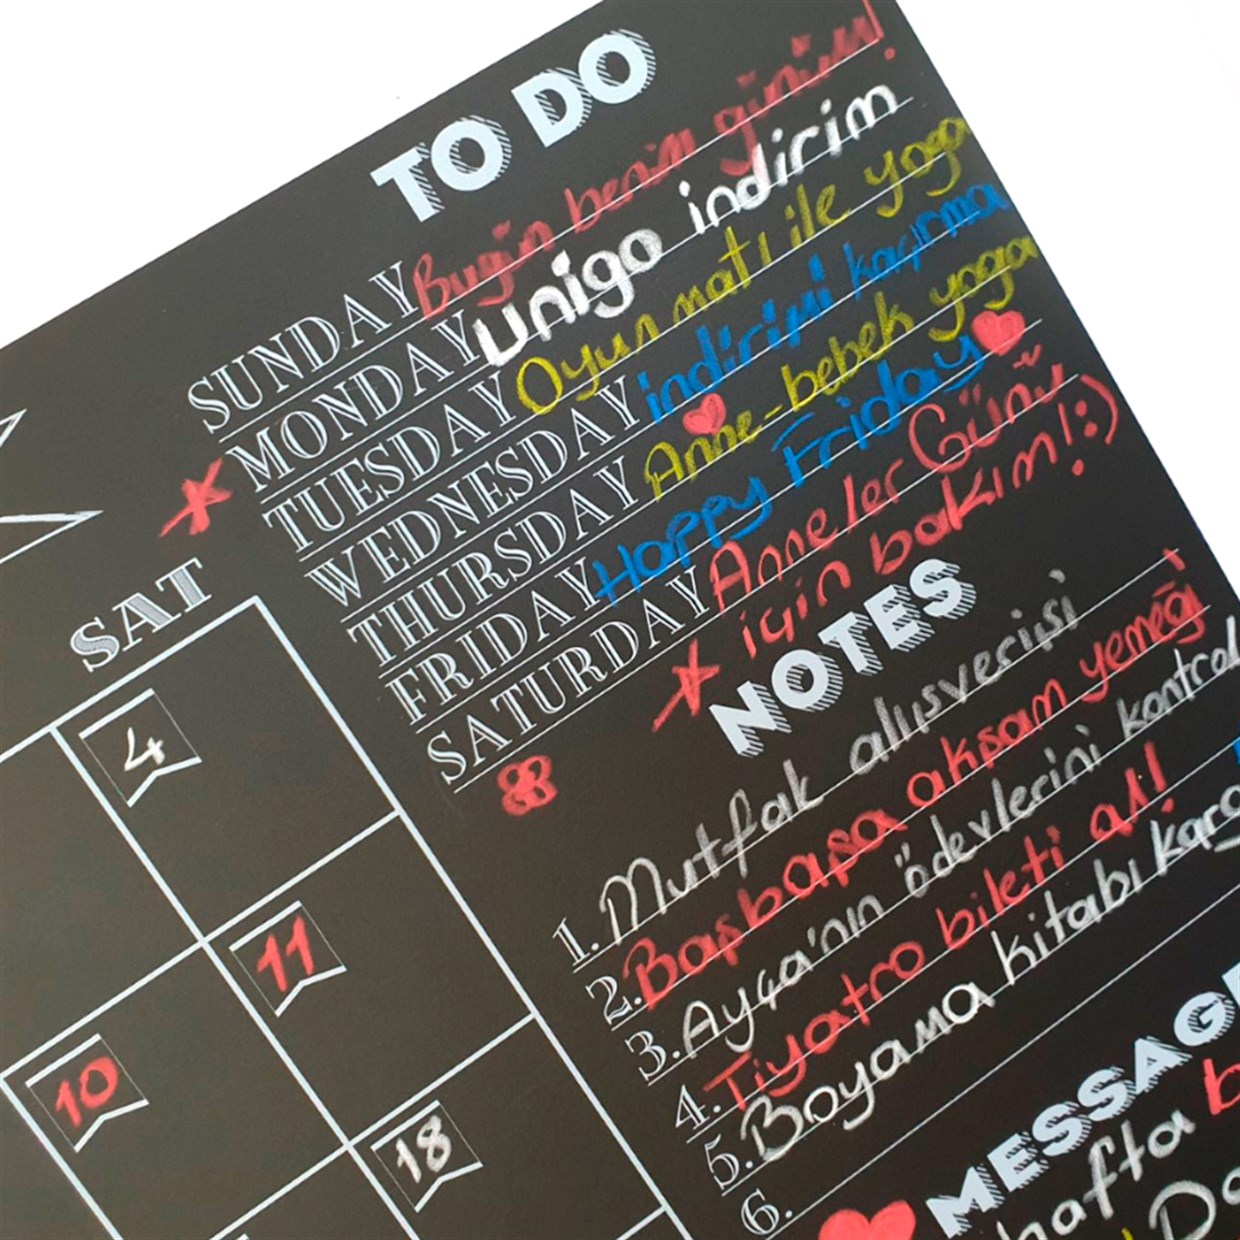 TO DO
SUNDAY Bugün benim günüm!
MONDAY Unigo indirim
TUESDAY Oyun mat ile yoga
WEDNESDAY indirimi kaçırma
THURSDAY Anne-bebek yoga
FRIDAY Happy Friday
SATURDAY Anneler Günü
için bakım! :)
SAT
4
11
10
18
NOTES
1. Mutfak alışverişi
2. Başbaşa akşam yemeği
3. Ayça'nın ödevlerini kontrol
4. Tiyatro bileti al!
5. Boyama kitabı
6.
MESSAGE
hafta